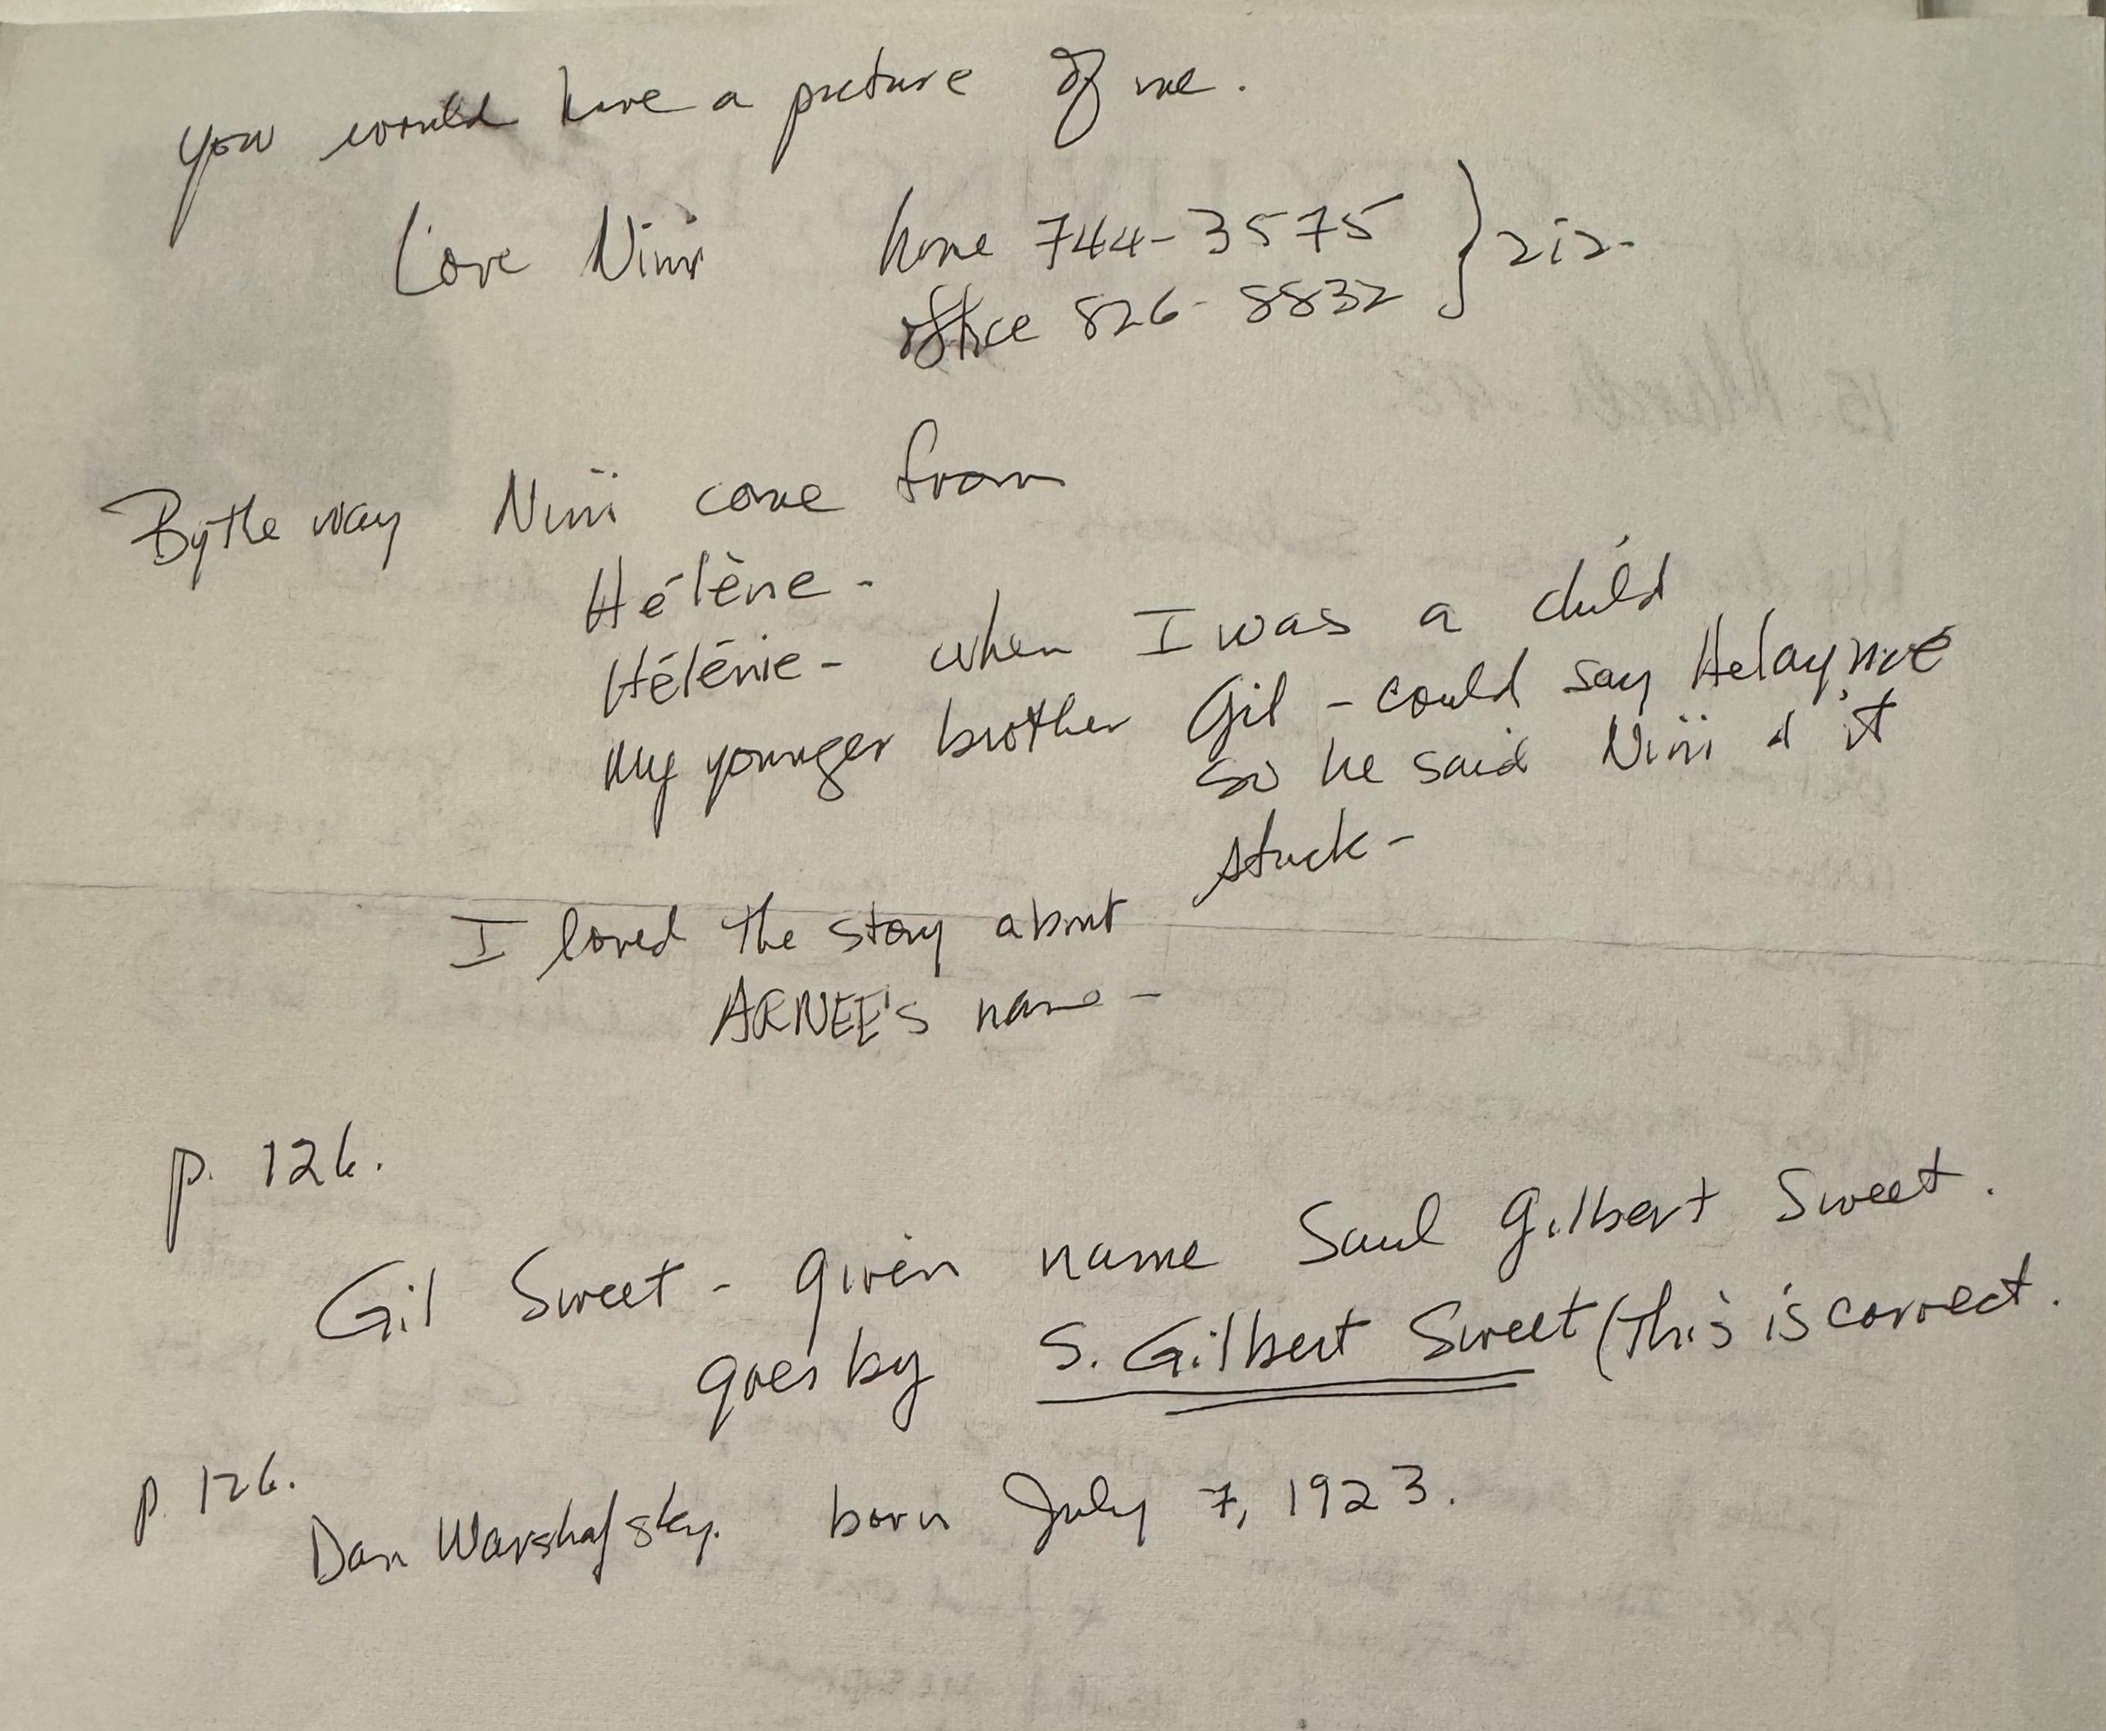 you would have a picture of me.
Love Nini home 744-3575 } 212-
office 826-8832
By the way Nini come from
Hélène -
Hélénie - when I was a child
my younger brother Gil - could say Helayne
so he said Nini & it
stuck -
I loved the story about
ARNEE's name -
p. 126.
Gil Sweet - given name Saul Gilbert Sweet.
goes by S. Gilbert Sweet (This is correct.
p. 126.
Dan Warshafsky. born July 7, 1923.